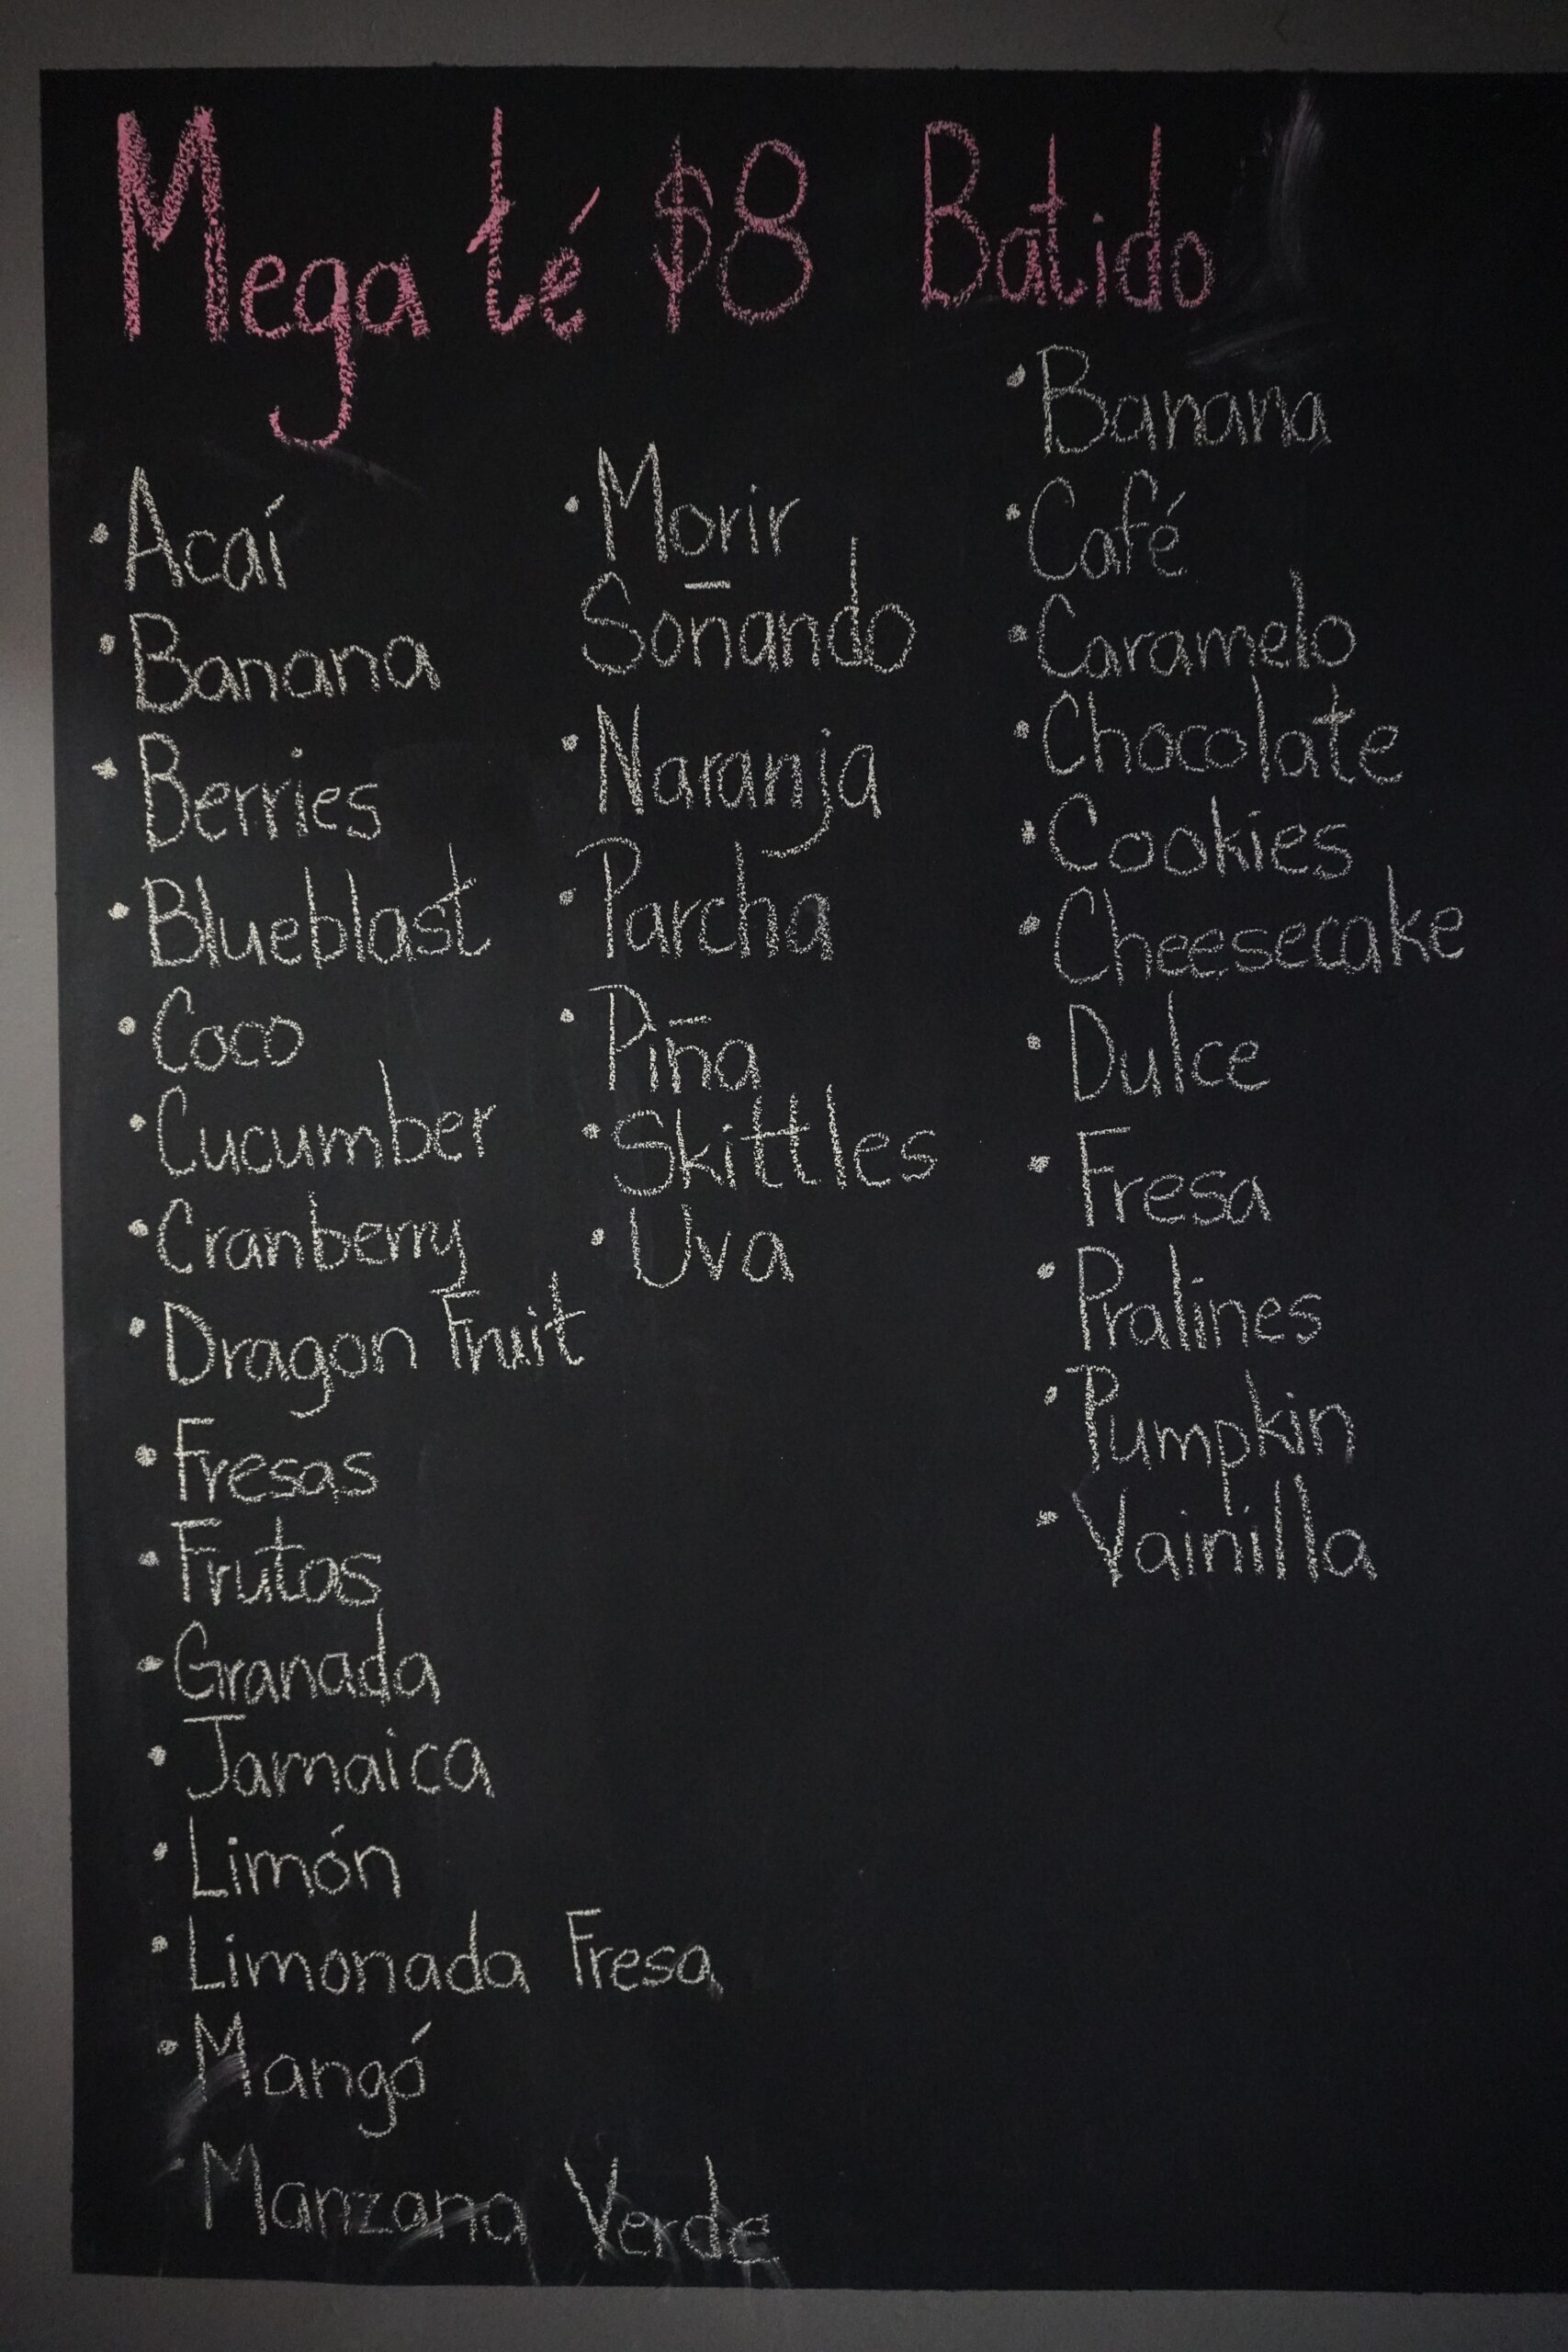 Mega té $8
• Acaí
• Banana
• Berries
• Blueblast
• Coco
• Cucumber
• Cranberry
• Dragon Fruit
• Fresas
• Frutas
• Granada
• Jamaica
• Limón
• Limonada Fresa
• Mangó
• Manzana Verde
• Morir
Soñando
• Naranja
• Parcha
• Piña
• Skittles
• Uva
Batido
• Banana
• Café
• Caramelo
• Chocolate
• Cookies
• Cheesecake
• Dulce
• Fresa
• Pralines
• Pumpkin
• Vainilla